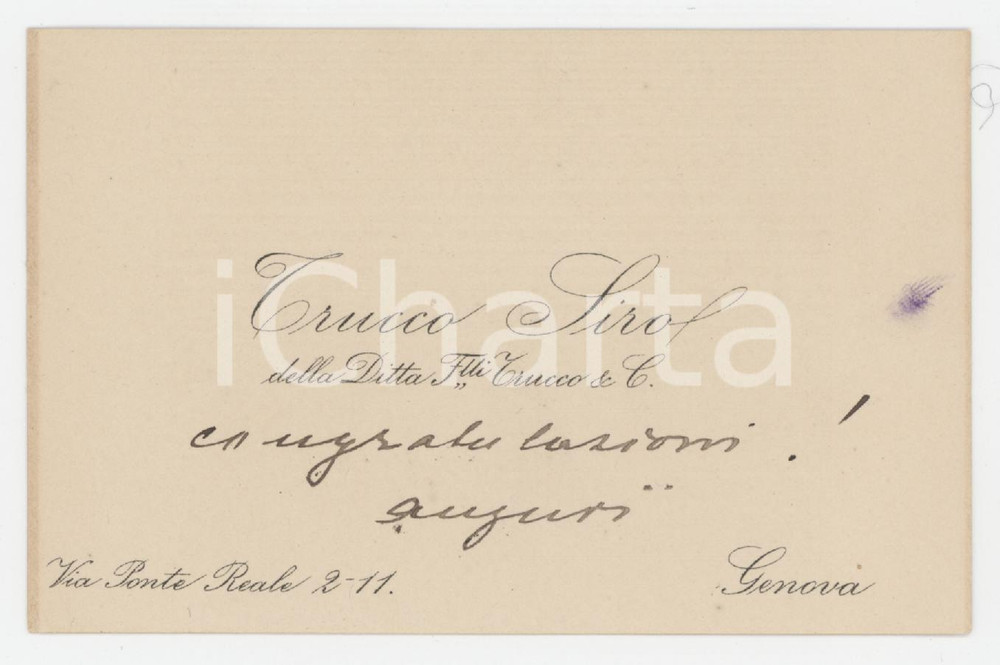 Trucco Siro
della Ditta F.lli Trucco & C.
congratulazioni !
auguri
Via Ponte Reale 2-11.
Genova
iCharta